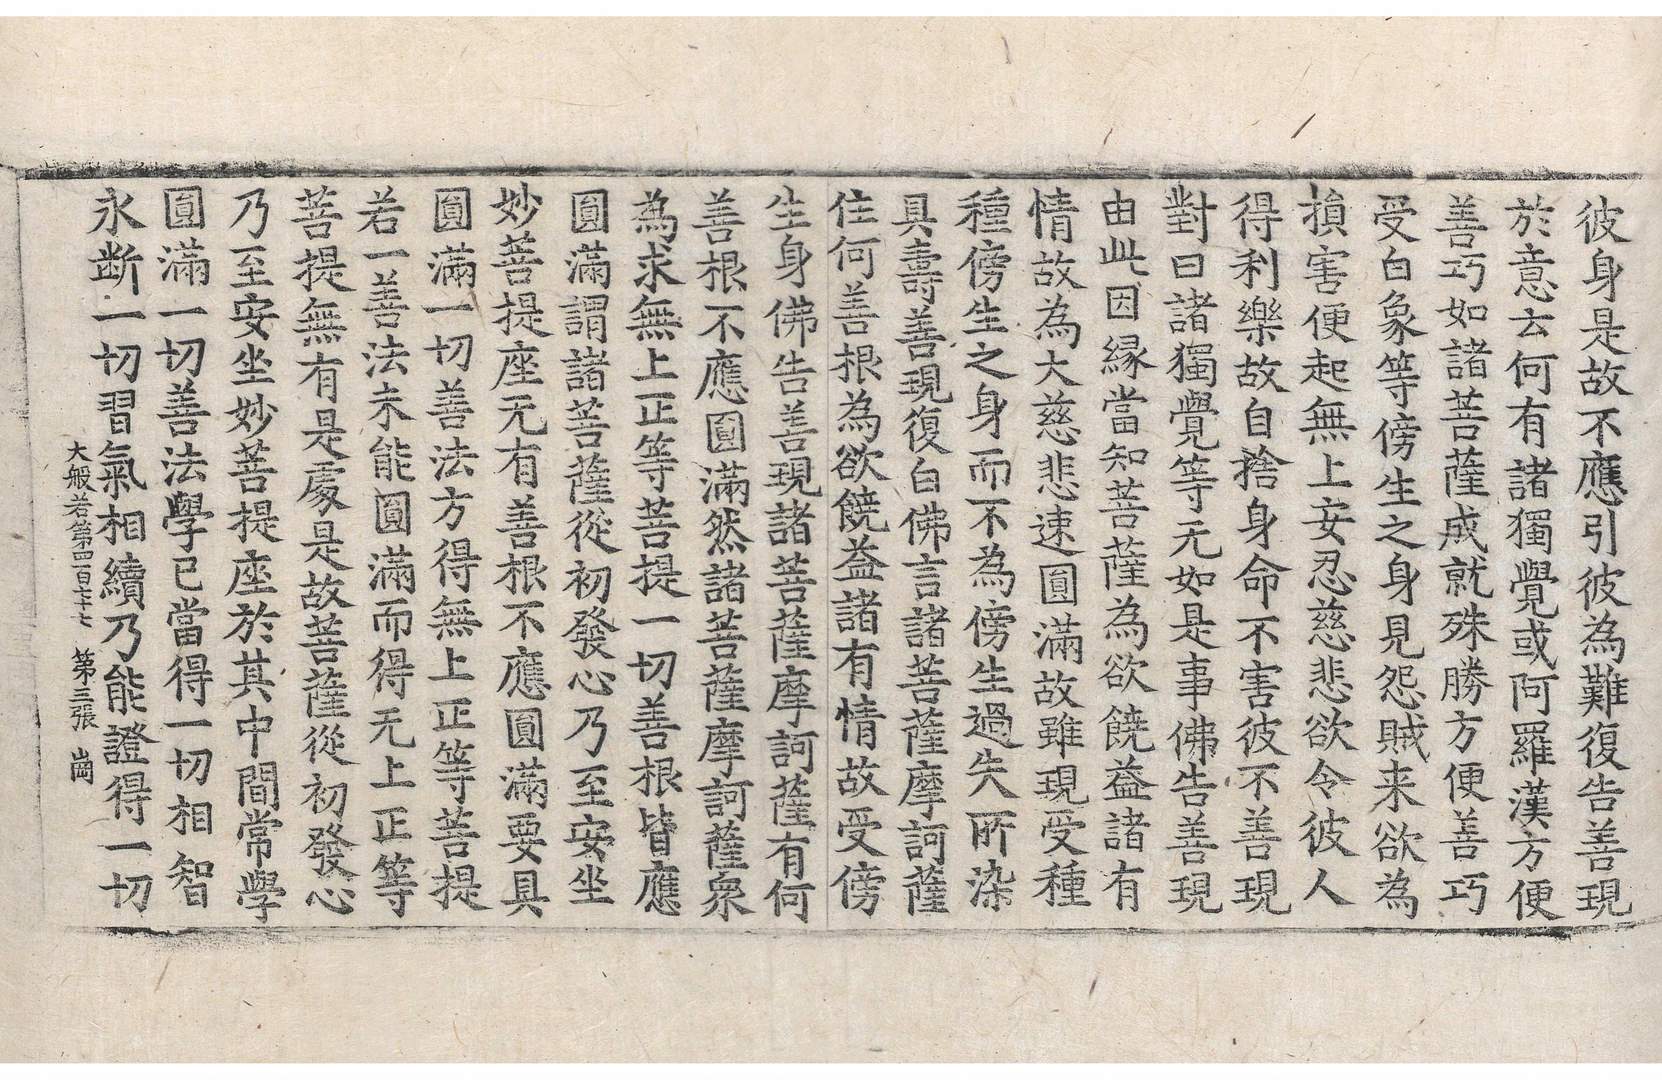 彼身是故不應引彼為難復告善現
於意云何有諸獨覺或阿羅漢方便
善巧如諸菩薩成就殊勝方便善巧
受白象等傍生之身見怨賊来欲為
損害便起無上安忍慈悲欲令彼人
得利樂故自捨身命不害彼不善現
對曰諸獨覺等无如是事佛告善現
由此因緣當知菩薩為欲饒益諸有
情故為大慈悲速圓滿故雖現受種
種傍生之身而不為傍生過失所染
具壽善現復白佛言諸菩薩摩訶薩
住何善根為欲饒益諸有情故受傍
生身佛告善現諸菩薩摩訶薩有何
善根不應圓滿然諸菩薩摩訶薩衆
為求無上正等菩提一切善根皆應
圓滿謂諸菩薩從初發心乃至安坐
妙菩提座无有善根不應圓滿要具
圓滿一切善法方得無上正等菩提
若一善法未能圓滿而得无上正等
菩提無有是處是故菩薩從初發心
乃至安坐妙菩提座於其中間常學
圓滿一切善法學已當得一切相智
永断一切習氣相續乃能證得一切
大般若第四百七十七 第三張 崗